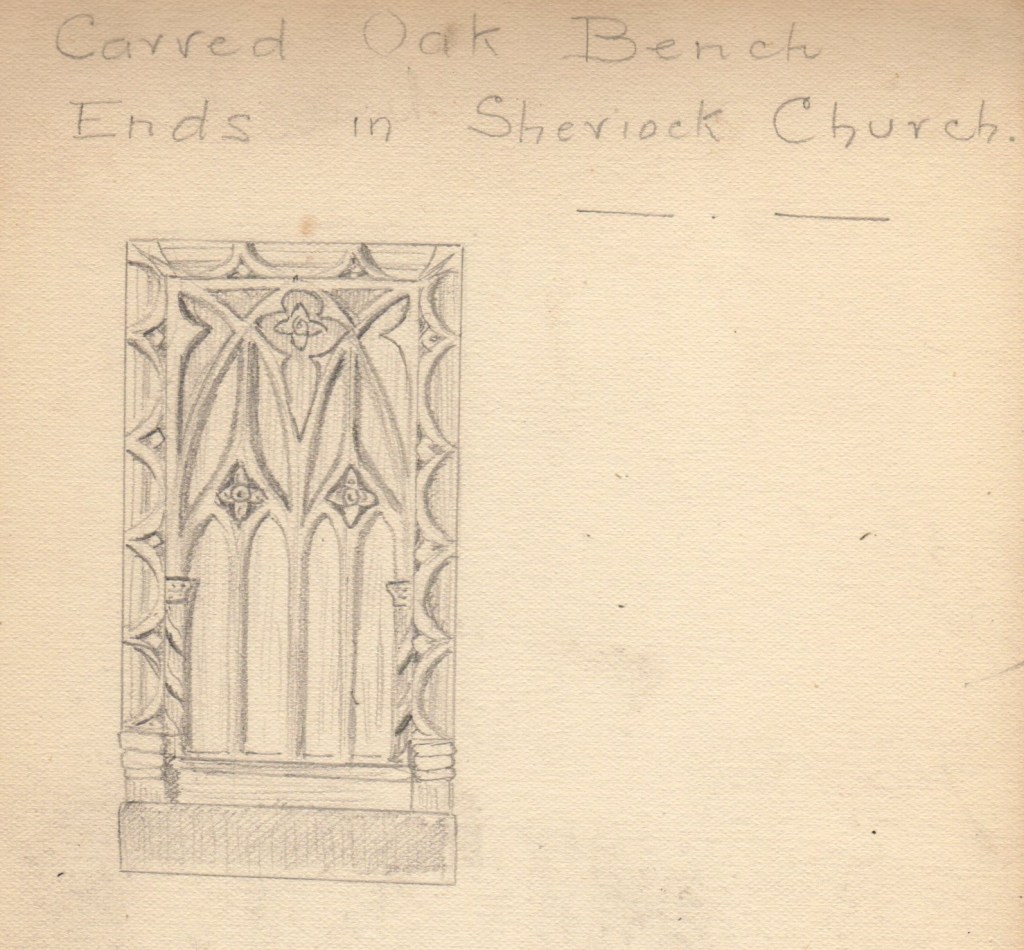 Carved Oak Bench
Ends in Sheviock Church.